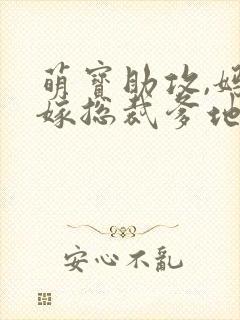 萌寶助攻,媽
嫁總裁爹地
安心不亂